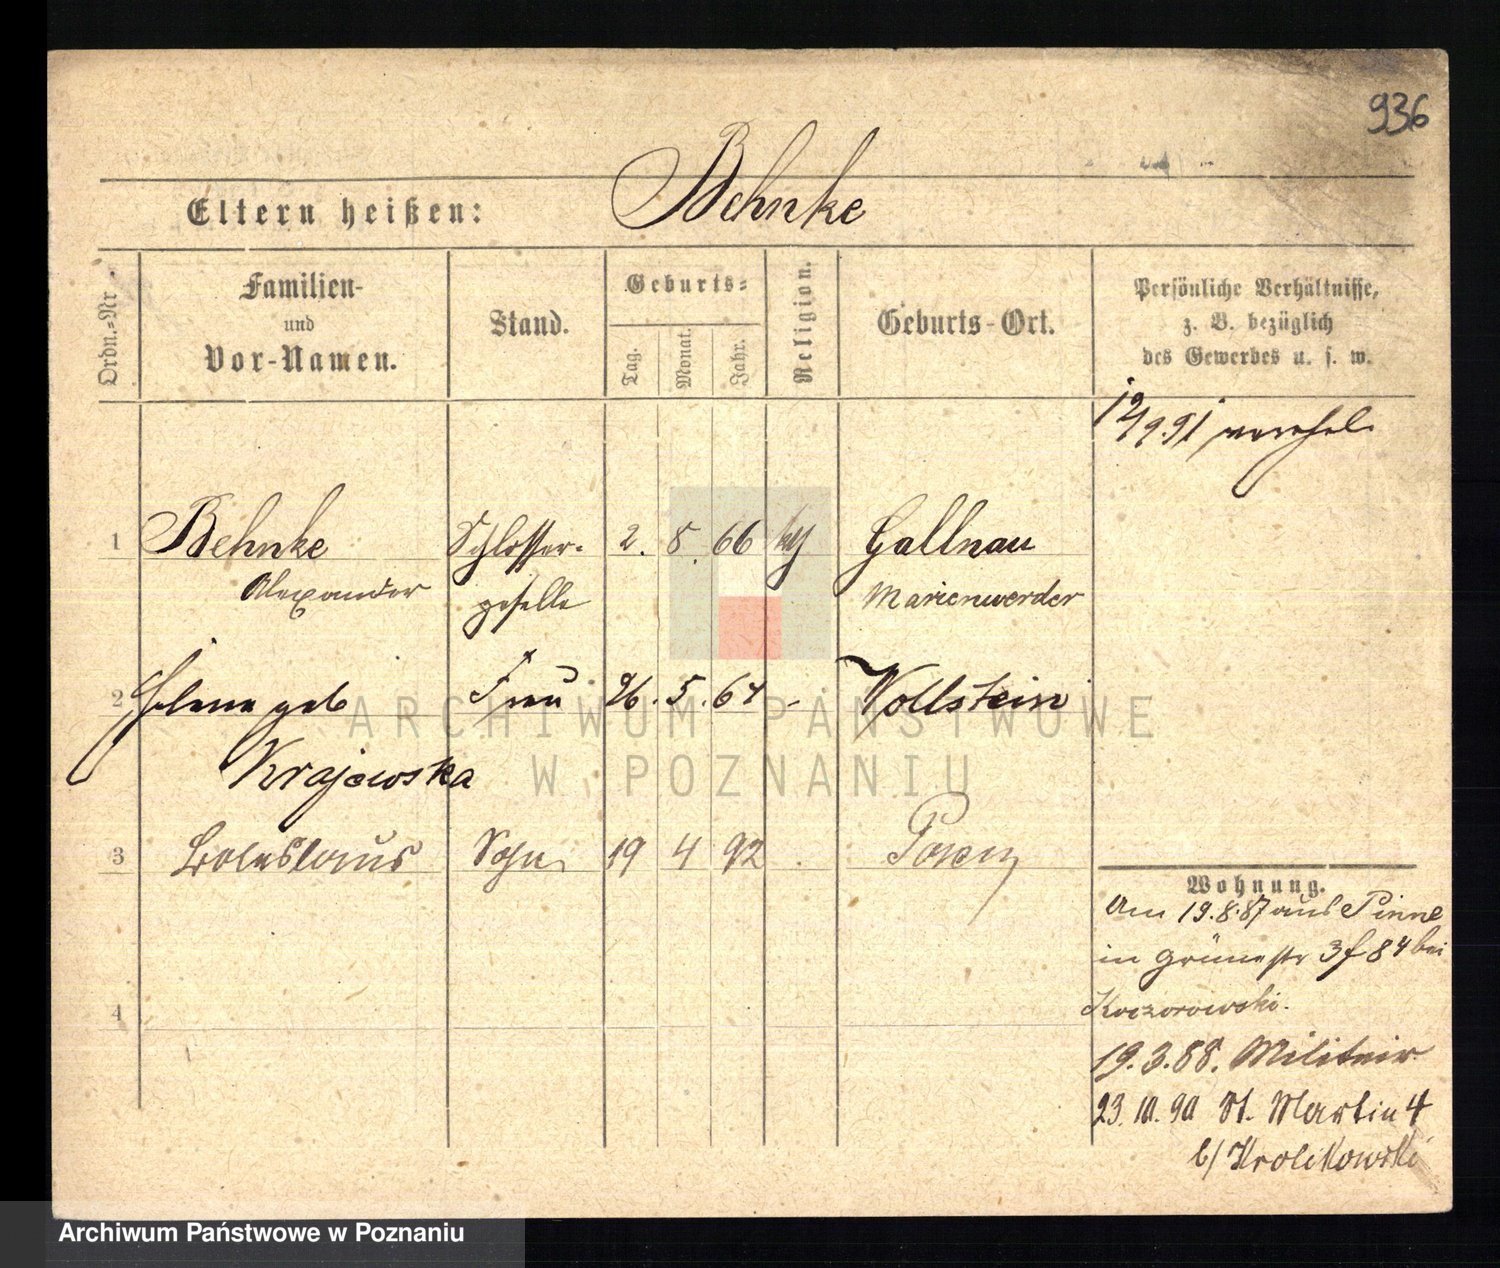 936
Behnke
Eltern heißen:
Ordn.=Nr.
Familien-
und
Vor-Namen.
Stand.
Geburts=
Tag.
Monat.
Jahr.
Religion.
Geburts-Ort.
Persönliche Verhältnisse,
z. B. bezüglich
des Gewerbes u. s. w.
9.91 verehel.
1 Behnke Schlosser- 2. 8. 66 Gallnau
Alexander geselle Marienwerder
2 Helena geb Frau 26. 5. 64 - Wollstein
Krajewska
3 Boleslaus Sohn 19 4 92 Posen
4
Wohnung.
Am 19.8.87 aus Pinne
in Grünestr 3 f 84 bei
Koczorowski.
19.3.88. Militair
23.10.90 St. Martin 4
b/ Krolikowski
ARCHIWUM PAŃSTWOWE
W POZNANIU
Archiwum Państwowe w Poznaniu